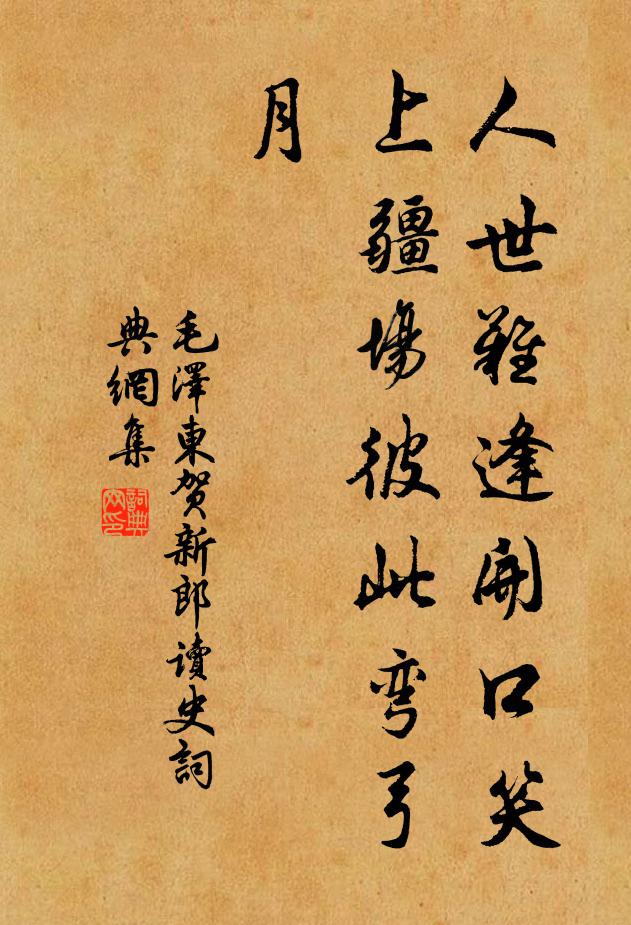 人世難逢開口笑
上疆場彼此彎弓
月
毛澤東贺新郎讀史詞
典網集
詞典
网印